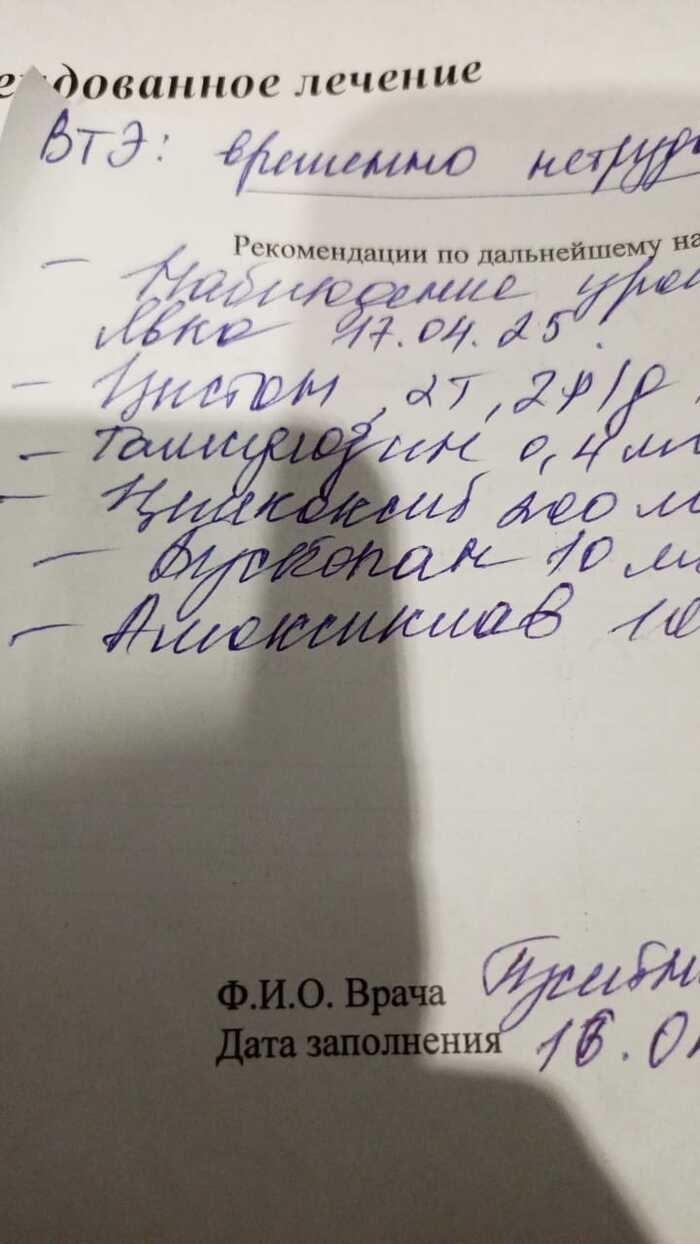 ендованное лечение
ВТЭ: временно нетруд
Рекомендации по дальнейшему на
- Наблюдение уро
Явка 17.04.25!
- Цистон, 2т, 2р/д
- Тамсулозин 0,4 м
- Целекоксиб 200 м
- Бускопан 10 м
- Амоксиклав 10
Ф.И.О. Врача
Дата заполнения 16.04